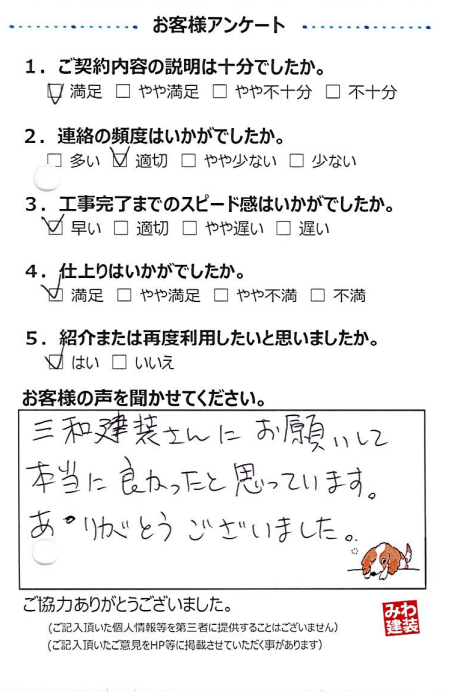 お客様アンケート
1．ご契約内容の説明は十分でしたか。
☑ 満足 □ やや満足 □ やや不十分 □ 不十分
2．連絡の頻度はいかがでしたか。
□ 多い ☑ 適切 □ やや少ない □ 少ない
3．工事完了までのスピード感はいかがでしたか。
☑ 早い □ 適切 □ やや遅い □ 遅い
4．仕上りはいかがでしたか。
☑ 満足 □ やや満足 □ やや不満 □ 不満
5．紹介または再度利用したいと思いましたか。
☑ はい □ いいえ
お客様の声を聞かせてください。
三和建装さんに お願いして
本当に良かったと思っています。
ありがとうございました。
ご協力ありがとうございました。
みわ
建装
(ご記入頂いた個人情報等を第三者に提供することはございません)
(ご記入頂いたご意見をHP等に掲載させていただく事があります)